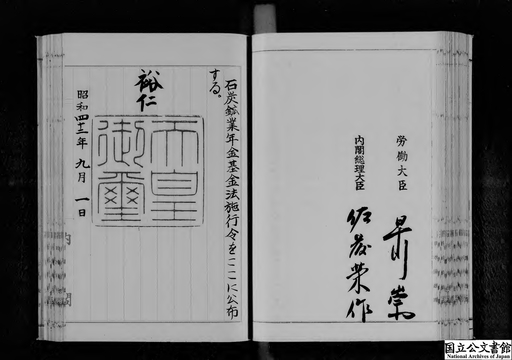 労働大臣 早川崇
内閣総理大臣 佐藤榮作
石炭鉱業年金基金法施行令をここに公布
する。
裕仁
天皇
御璽
昭和四十二年 九月 一日
内閣
国立公文書館
National Archives of Japan